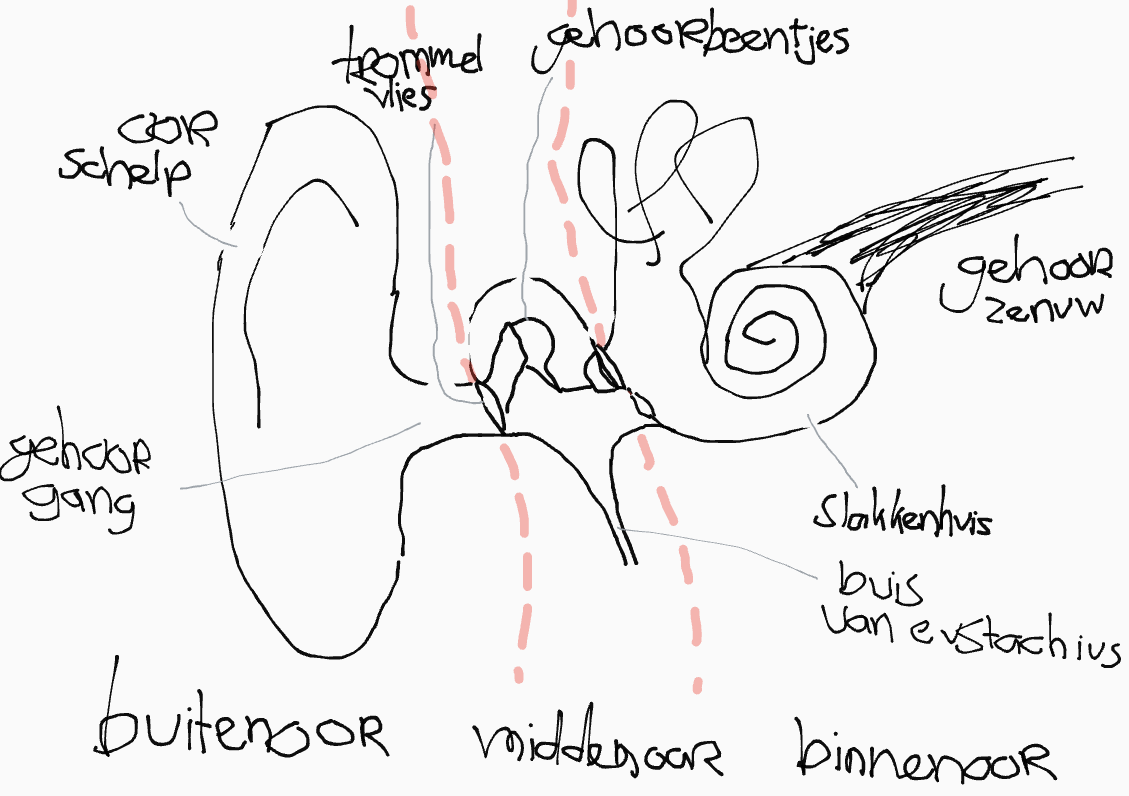 trommel
vlies
gehoorbeentjes
oor
schelp
gehoor
zenuw
gehoor
gang
slakkenhuis
buis
van eustachius
buitenoor
middenoor
binnenoor